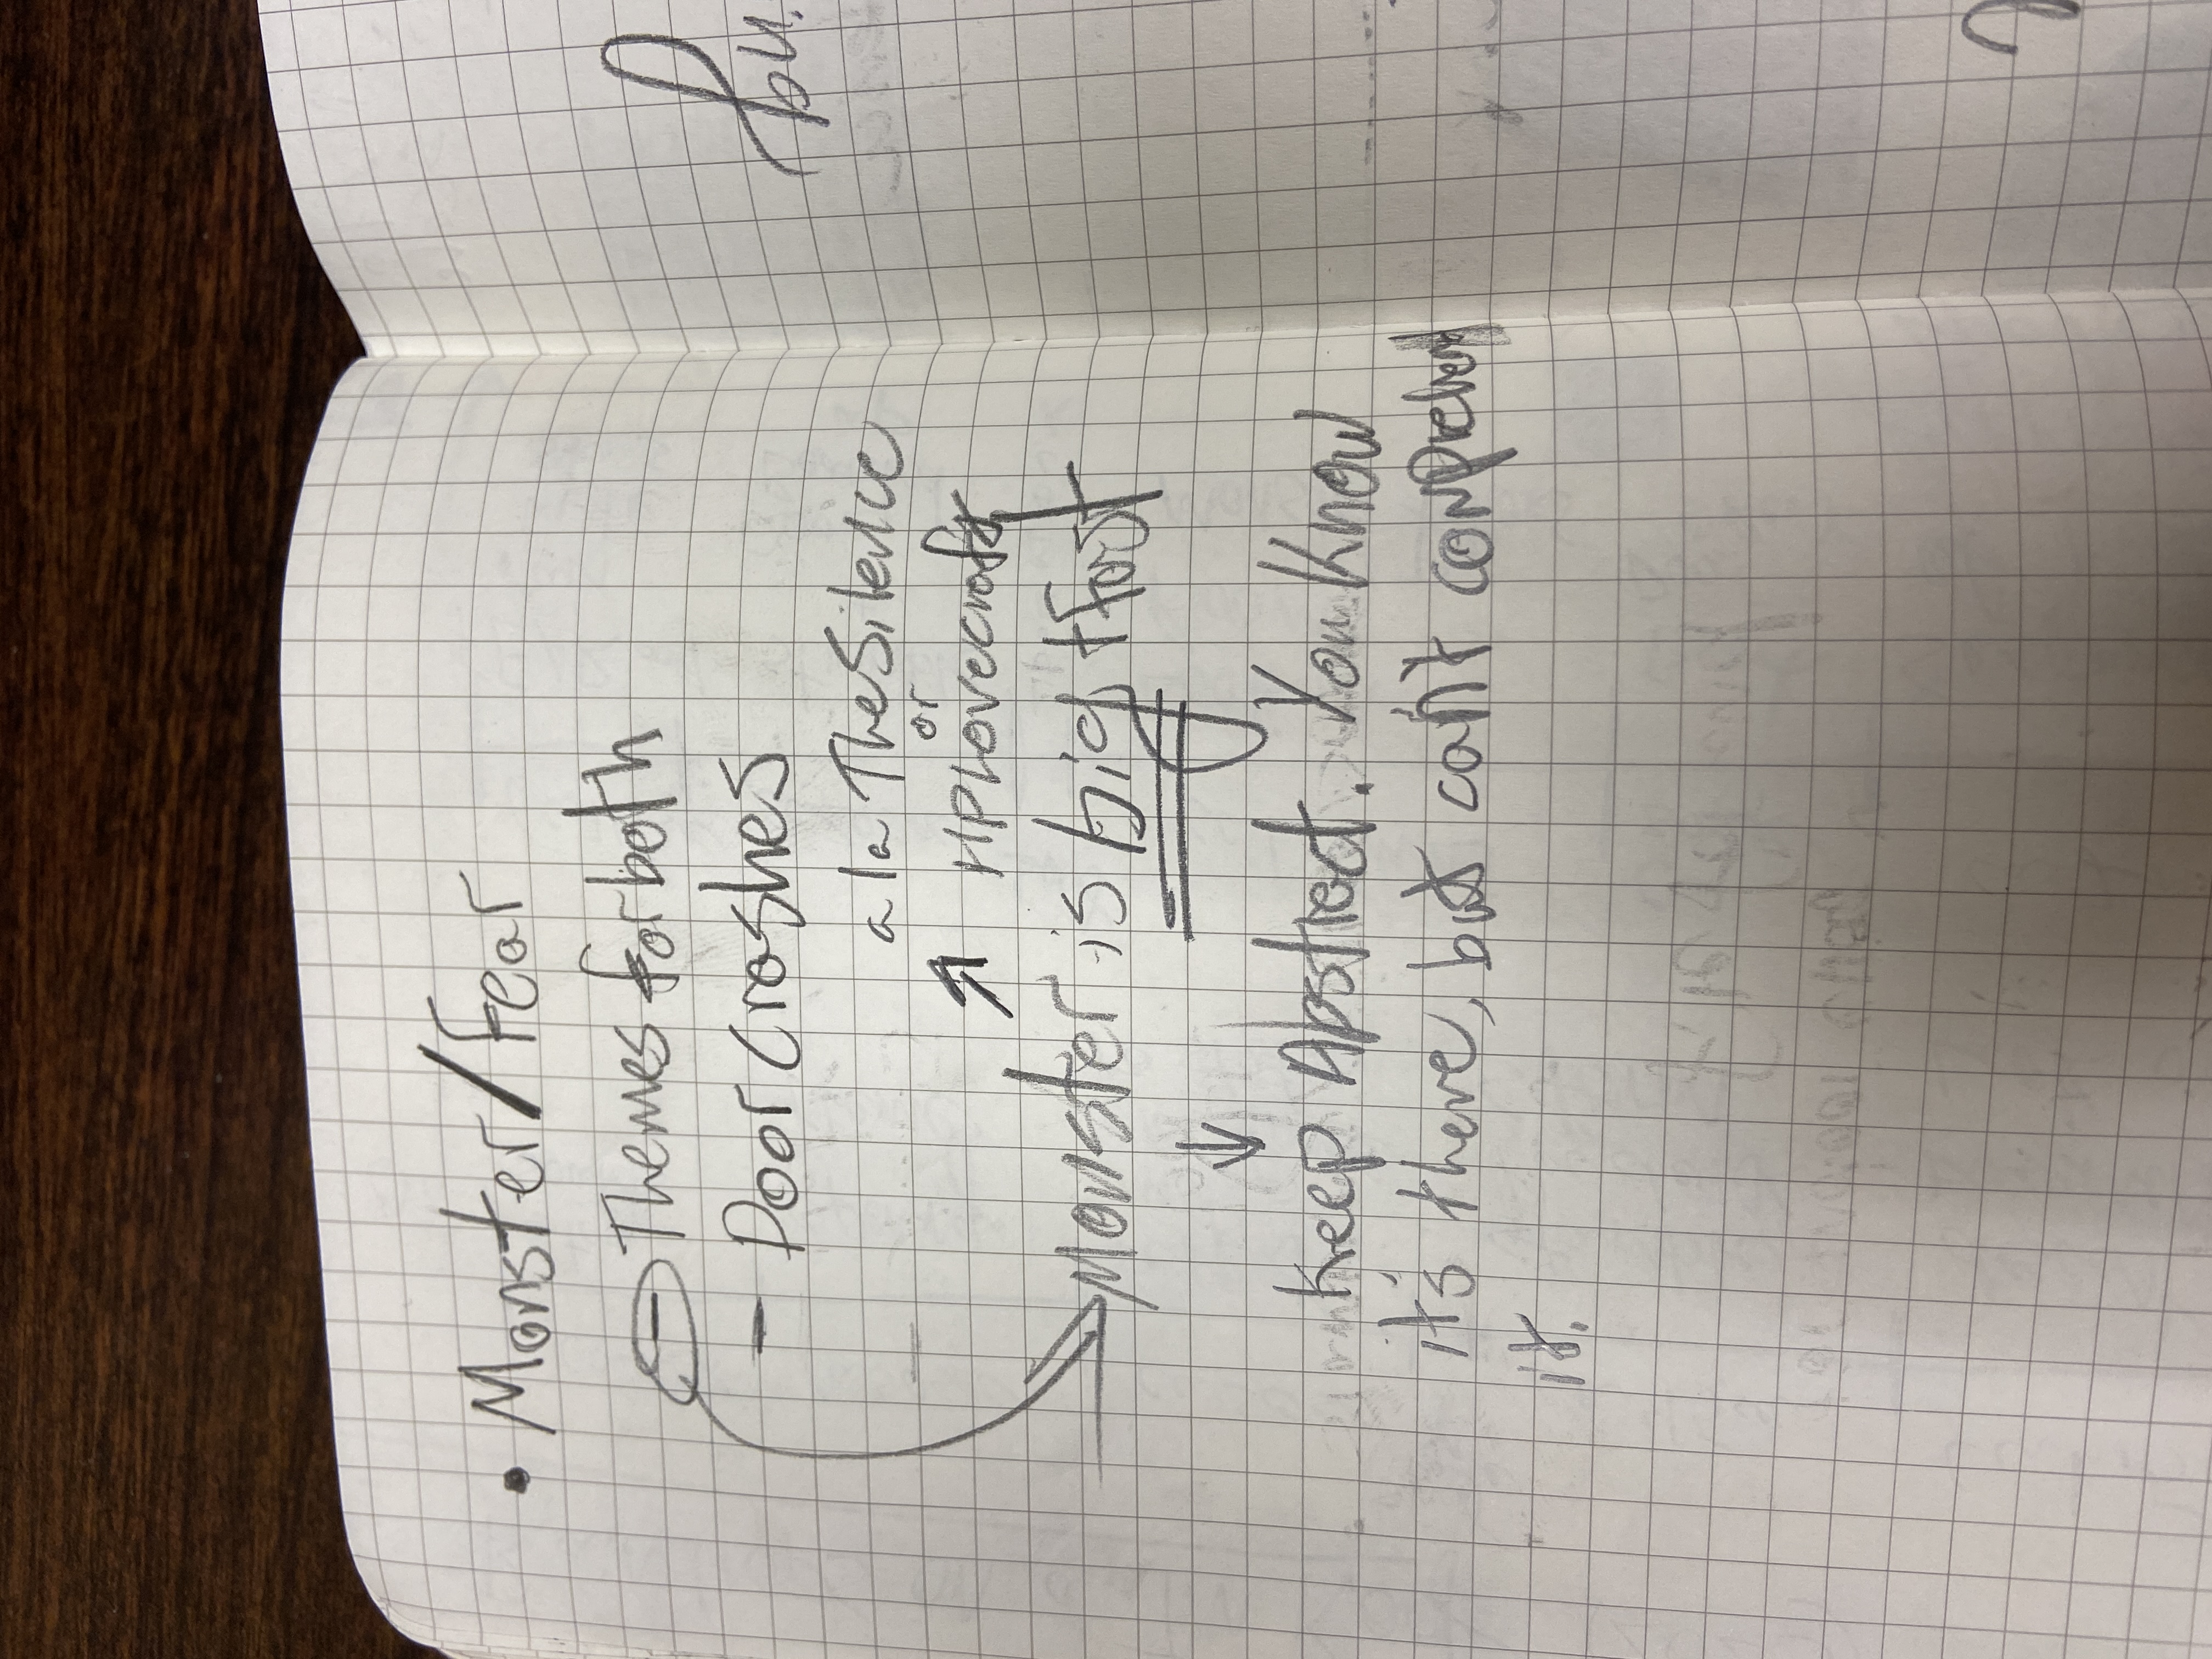 • Monster/Fear
- Themes for both
- Door Crashes
a la The Silence
or
HP Lovecraft
Monster is big + Fast
↓
Keep Abstract. You Know
it's there, but can't comprehend
it.